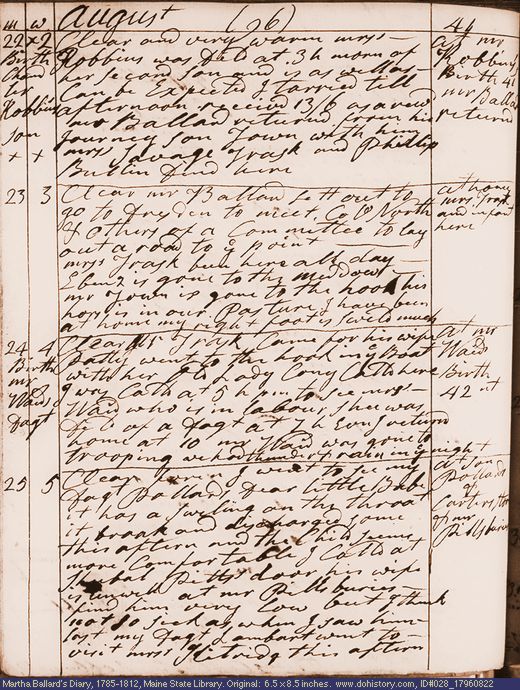 m w August (96) 44
22 x 2 Clear and very warm mrss
Birth Robbins was Dld at 3 h morn of
her second son and is as well as
Can be Expected I tarried till
afternoon received 13/6 as a reward
mr Ballard returnd from his
Journey. Son Town with him
mrss Savage Trask and Phillip
Bullin dind here
at mr
Robbins
Birth 41
mr Ballard
returnd
23 3 Clear mr Ballard sett out to
go to Dresden to meet Colo North
& others of a Committee to lay
out a road to ye point
mrss Trask been here all day
Ebenz is gone to the meddow
mr Town is gone to the hook his
hors is in our Pasture I have been
at home my right foot is sweld much
at home
mrs Trask
and infant
here
24 4 Clear mr Trask Came for his wife
Patty went to the hook in my Boat
with her old Lady Cony Calld here
I was Calld at 5 h pm to see mrss
Waid who is in labour, she was
Dld of a Dagt at 7 h Eve I returnd
home at 10 mr Waid was gone to
trooping we had thunder & rain in ye night
Birth
mr
Waids
Dagt
at mr
Waids
Birth
42nt
25 5 Clear I went to see my
Dagt Pollard Dear little Babe
it has a swelling on the throat
it broak and discharged some
this aftern and the Child seems
more Comfortable I Calld at
door his wife
is at mr Pillsburies
find him very low but I think
not so sick as when I saw him
last my Dagt Lambart went to
visit mrss this aftern
at son
Pollards
&
mr
Pillsburies
Martha Ballard's Diary, 1785-1812, Maine State Library. Original: 6.5 x 8.5 inches. www.dohistory.com, ID#028_17960822